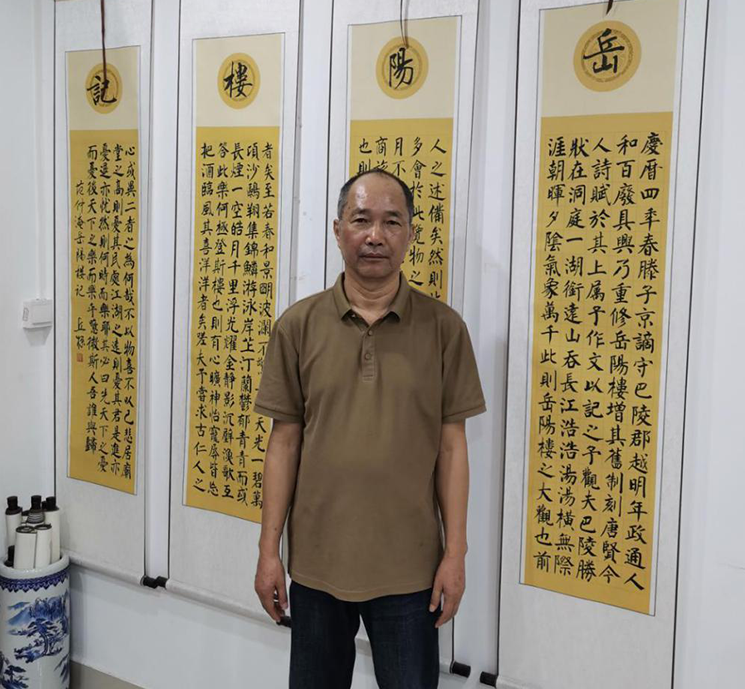 岳
慶曆四年春滕子京謫守巴陵郡越明年政通人
和百廢具興乃重修岳陽樓增其舊制刻唐賢今
人詩賦於其上属予作文以記之予觀夫巴陵勝
狀在洞庭一湖銜遠山吞長江浩浩湯湯橫無際
涯朝暉夕陰氣象萬千此則岳陽樓之大觀也前
陽
人之述備矣然則
多會於此覽物之
月不
商
也則
樓
者矣至若春和景明波瀾不 天光一碧萬
頃沙鷗翔集錦鱗游泳岸芷汀蘭鬱郁青青而或
長煙一空皓月千里浮光耀金靜影沉璧漁歌互
答此樂何極登斯樓也則有心曠神怡寵辱皆忘
把酒臨風其喜洋洋者矣嗟夫予嘗求古仁人之
記
心或異二者之為何哉不以物喜不以己悲居廟
堂之高則憂其民處江湖之遠則憂其君是進亦
憂退亦憂然則何時而樂耶其必曰先天下之憂
而憂後天下之樂而樂乎噫微斯人吾誰與歸
范仲淹岳陽樓記 丘